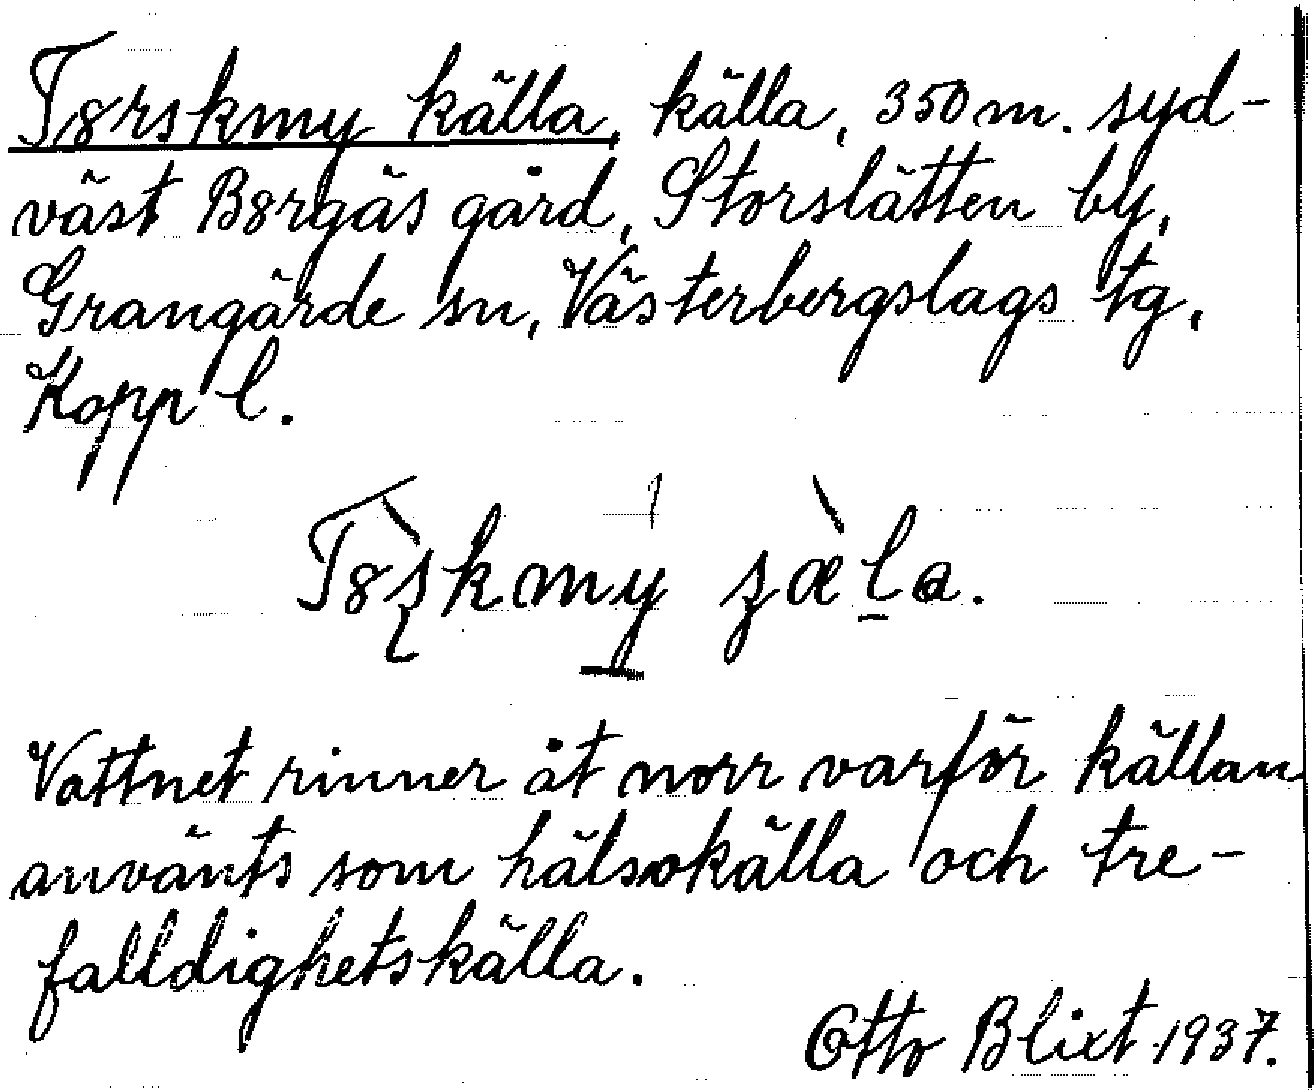 Tørskmy källa, källa, 350 m. syd-
väst Børgäs gård, Storslätten by,
Grangärde sn, Västerbergslags tg,
Kopp l.
Vattnet rinner åt norr varför källan
använts som hälsokälla och tre-
falldighetskälla.
Otto Blixt 1937.